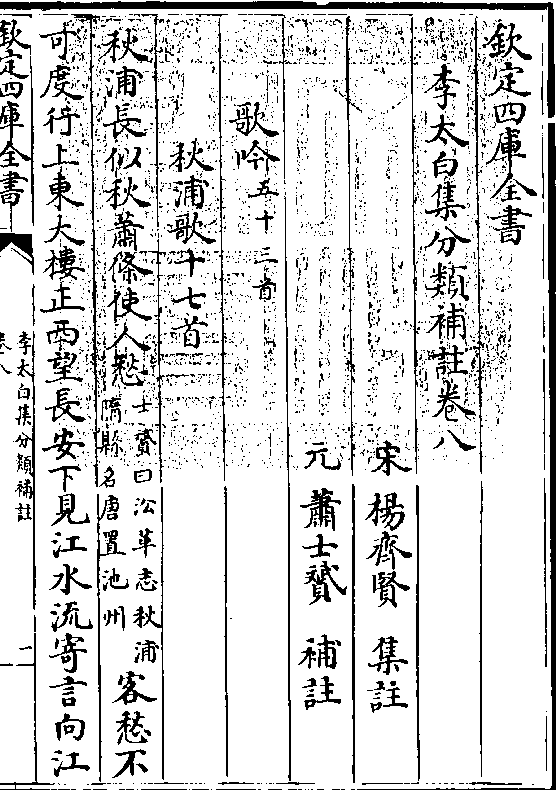 欽定四庫全書
李太白集分類補註卷八
宋 楊齊賢 集註
元 蕭士贇 補註
歌吟五十三首
秋浦歌十七首
秋浦長似秋蕭條使人愁士贇曰沿革志秋浦隋縣名唐置池州客愁不
可度行上東大樓正西望長安下見江水流寄言向江
欽定四庫全書
李太白集分類補註
卷八
一